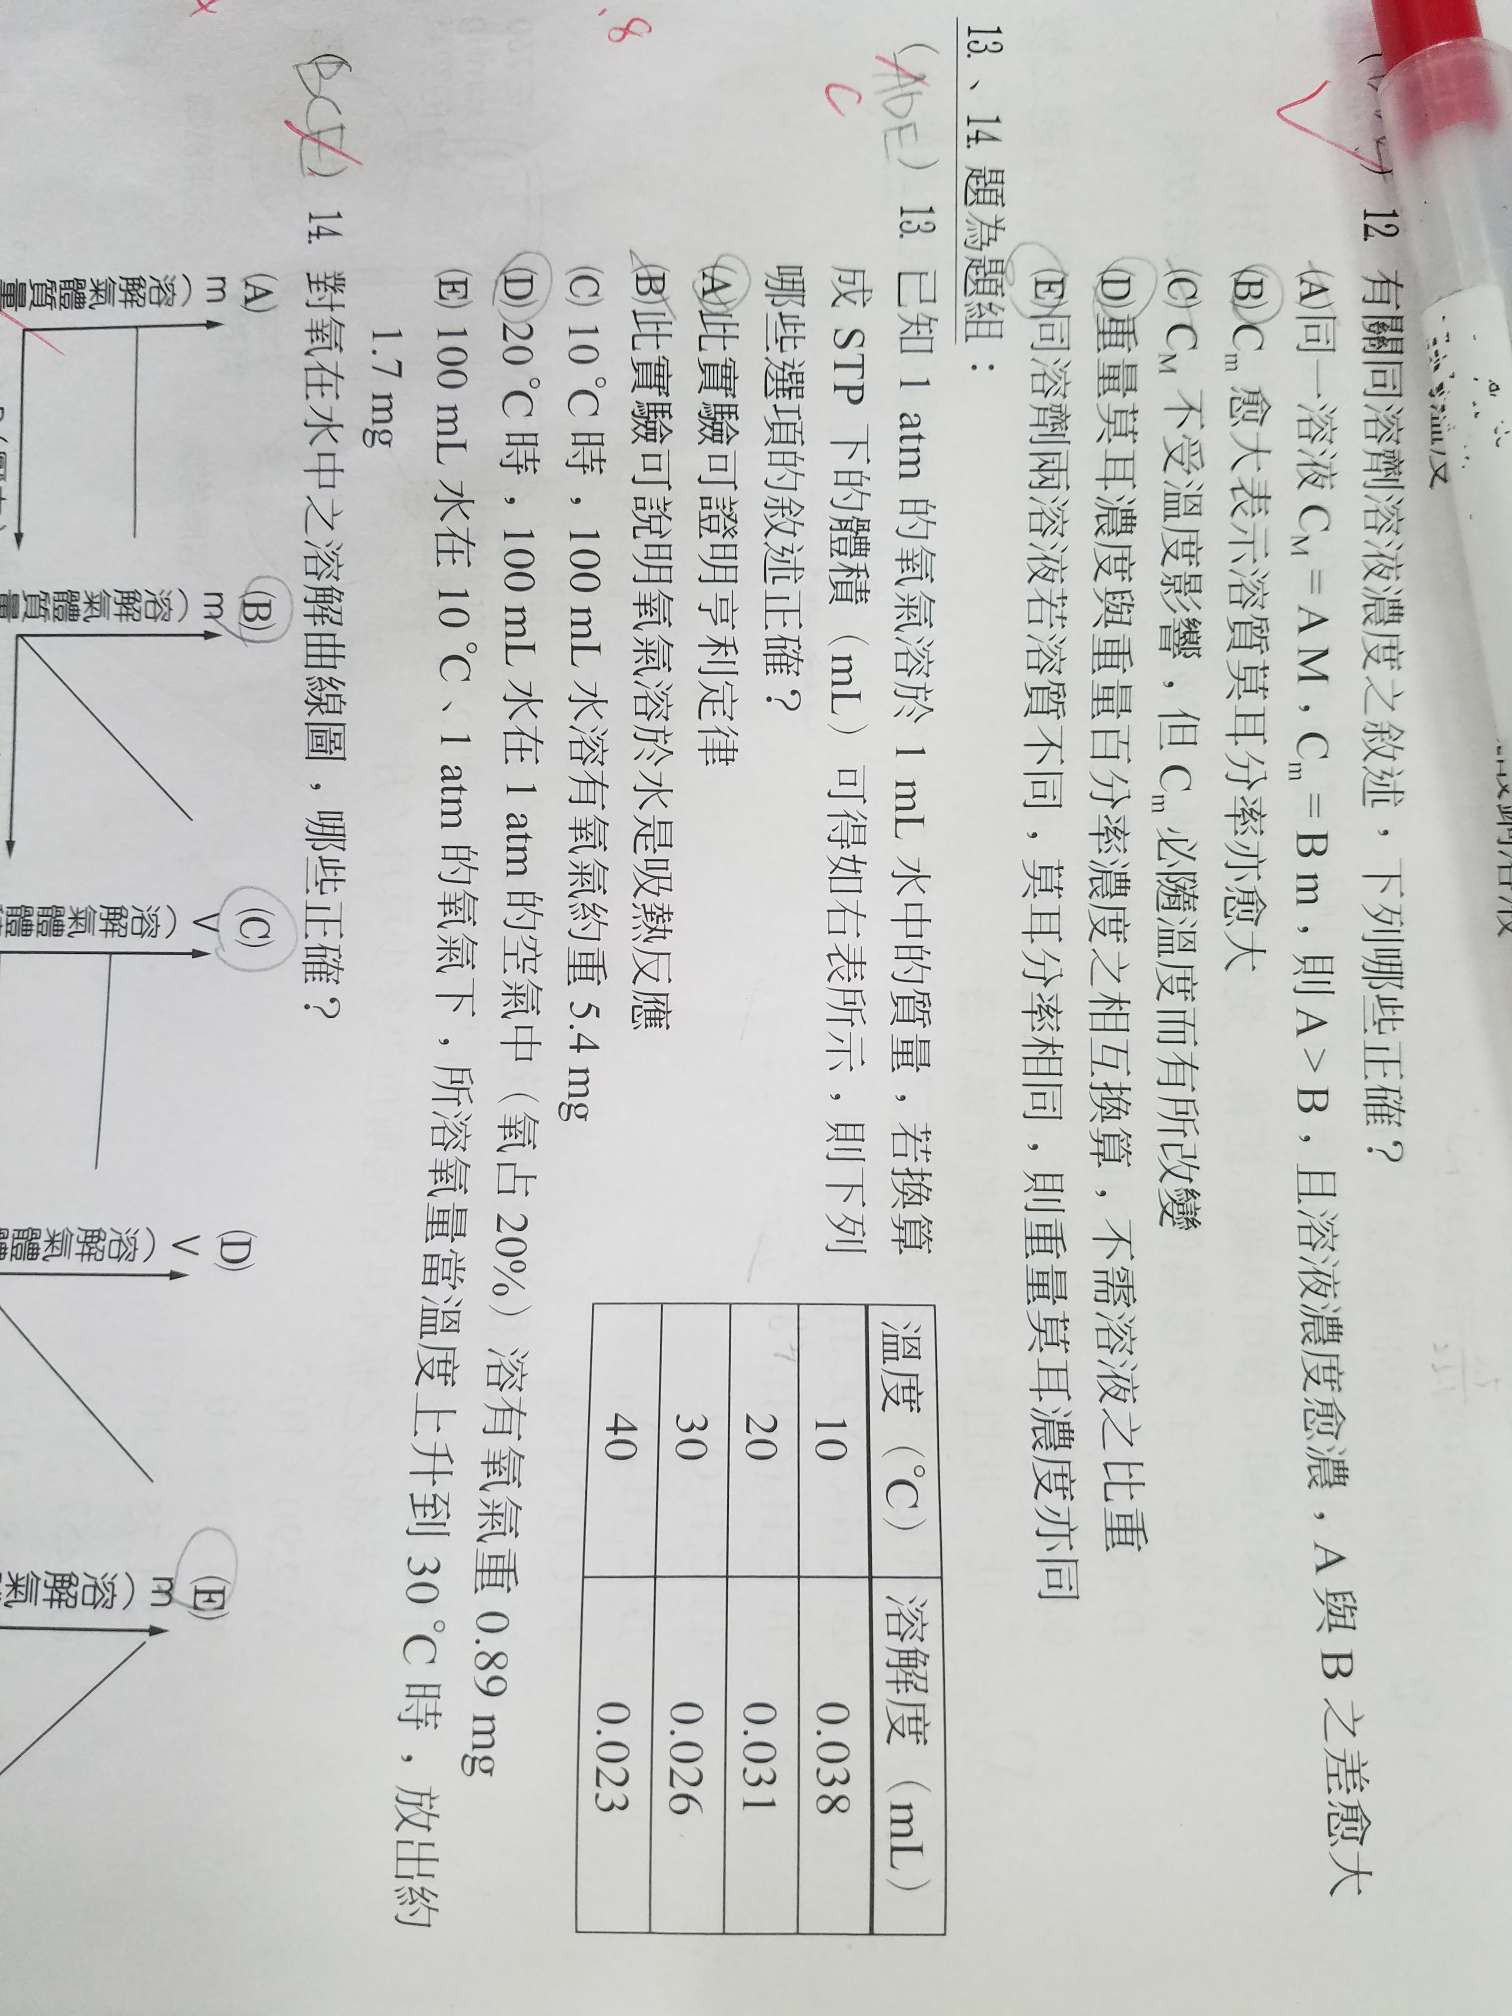 12. 有關同溶劑溶液濃度之敘述，下列哪些正確？
(A)同一溶液 CM = A M，Cm = B m，則 A > B，且溶液濃度愈濃，A 與 B 之差愈大
(B)Cm 愈大表示溶質莫耳分率亦愈大
(C)CM 不受溫度影響，但 Cm 必隨溫度而有所改變
(D)重量莫耳濃度與重量百分率濃度之相互換算，不需溶液之比重
(E)同溶劑兩溶液若溶質不同，莫耳分率相同，則重量莫耳濃度亦同
13.、14. 題為題組：
(ADE) 13. 已知 1 atm 的氧氣溶於 1 mL 水中的質量，若換算
C
成 STP 下的體積（mL）可得如右表所示，則下列
哪些選項的敘述正確？
溫度（°C） 溶解度（mL）
10 0.038
20 0.031
30 0.026
40 0.023
(A)此實驗可證明亨利定律
(B)此實驗可說明氧氣溶於水是吸熱反應
(C) 10 °C 時，100 mL 水溶有氧氣約重 5.4 mg
(D) 20 °C 時，100 mL 水在 1 atm 的空氣中（氧占 20%）溶有氧氣重 0.89 mg
(E) 100 mL 水在 10 °C、1 atm 的氧氣下，所溶氧量當溫度上升到 30 °C 時，放出約
1.7 mg
8
(BCE) 14. 對氧在水中之溶解曲線圖，哪些正確？
(A) (B) (C) (D) (E)
m（溶解氣體質量 m（溶解氣體質量 V（溶解氣體 V（溶解氣體 m（溶解氣